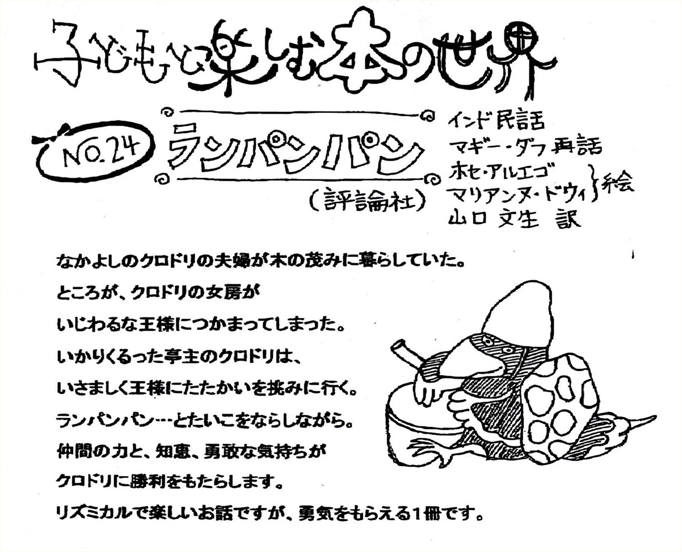 子どもと楽しむ本の世界
NO.24
ランパンパン
(評論社)
インド民話
マギー・ダフ再話
ホセ・アルエゴ
マリアンヌ・ドウィ}絵
山口 文生 訳
なかよしのクロドリの夫婦が木の茂みに暮らしていた。
ところが、クロドリの女房が
いじわるな王様につかまってしまった。
いかりくるった亭主のクロドリは、
いさましく王様にたたかいを挑みに行く。
ランパンパン…とたいこをならしながら。
仲間の力と、知恵、勇敢な気持ちが
クロドリに勝利をもたらします。
リズミカルで楽しいお話ですが、勇気をもらえる1冊です。